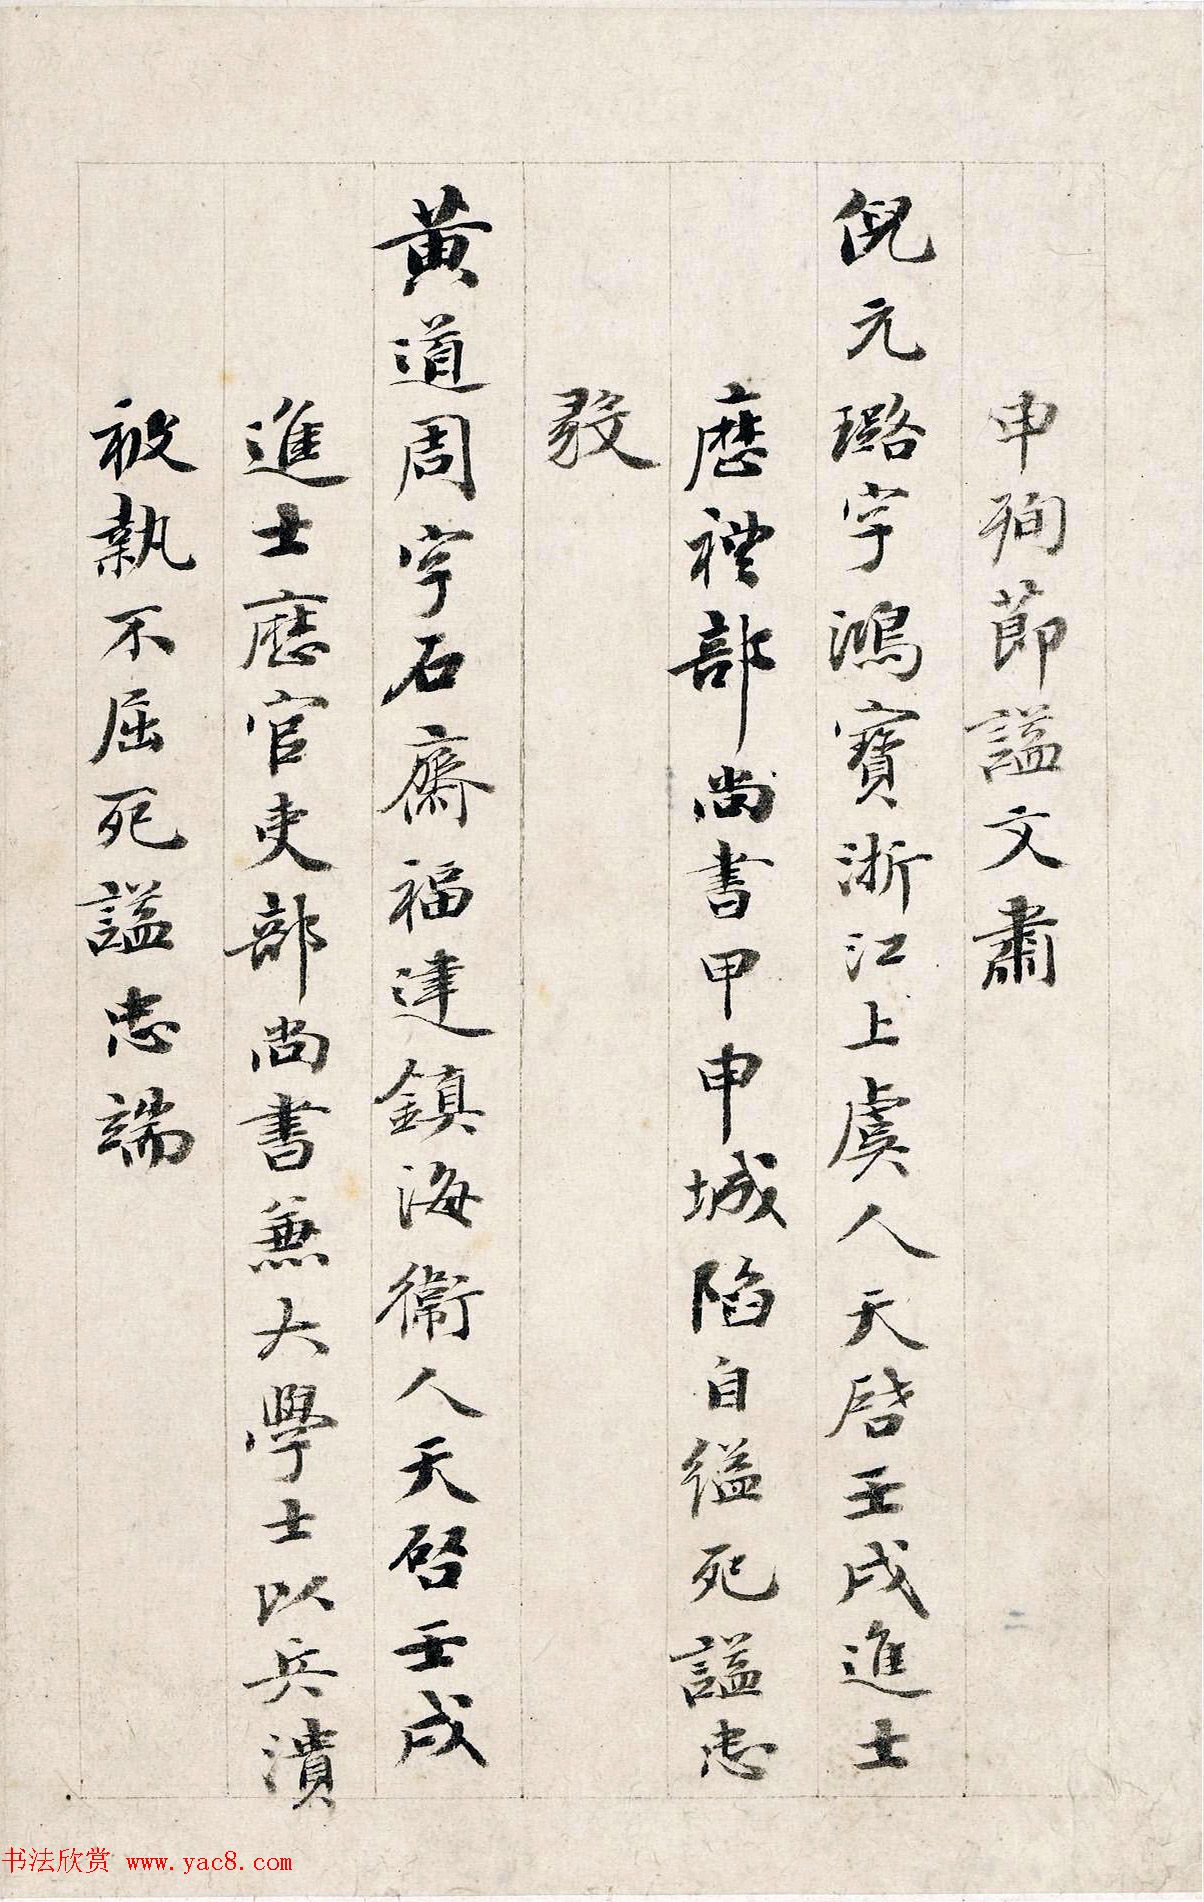 申殉節謚文肅
倪元璐字鴻寶浙江上虞人天啓壬戌進士
歷禮部尚書甲申城陷自縊死謚忠
黃道周字石齋福建鎮海衛人天啓壬戌
進士歷官吏部尚書兼大學士以兵潰
被執不屈死謚忠端
书法欣赏 www.yac8.com